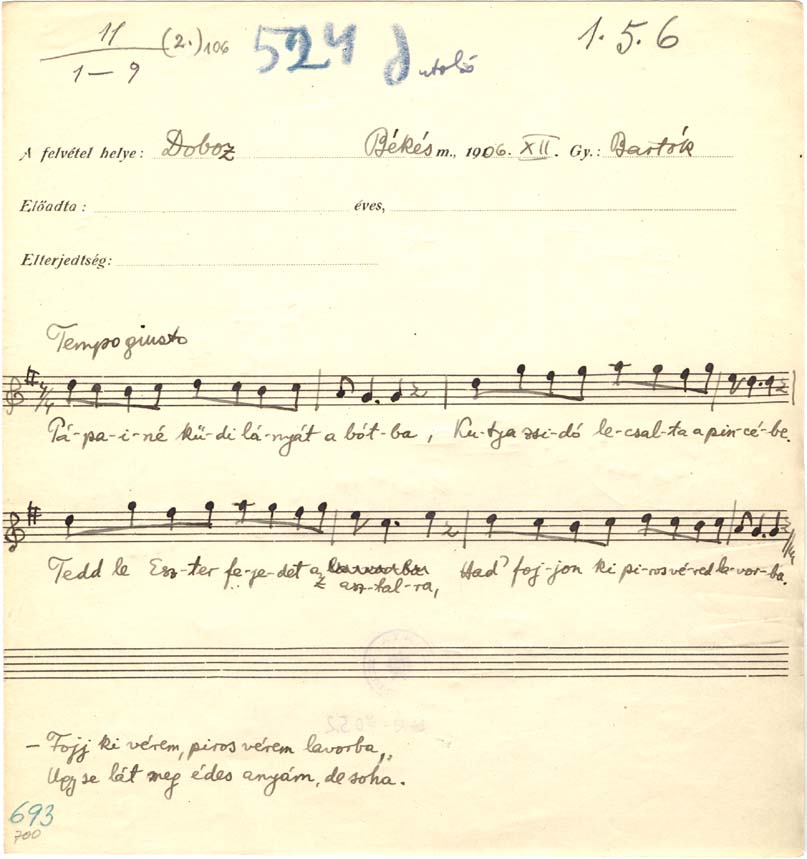 11 (2.) 106 524 d utolsó 1. 5. 6
1 — 9
A felvétel helye: Doboz Békés m., 1906. XII. Gy.: Bartók
Előadta: éves,
Elterjedtség:
Tempo giusto
4/4
Pá-pa-i-né kü-di lá-nyát a bót-ba, Ku-tya zsi-dó le-csal-ta a pin-cé-be.
Tedd le Esz-ter fe-je-det az asz-tal-ra, Had' foj-jon ki pi-ros vé-red la-vor-ba.
— Fojj ki vérem, piros vérem lavorba,
Ugy se lát meg édes anyám, de soha.
693
700